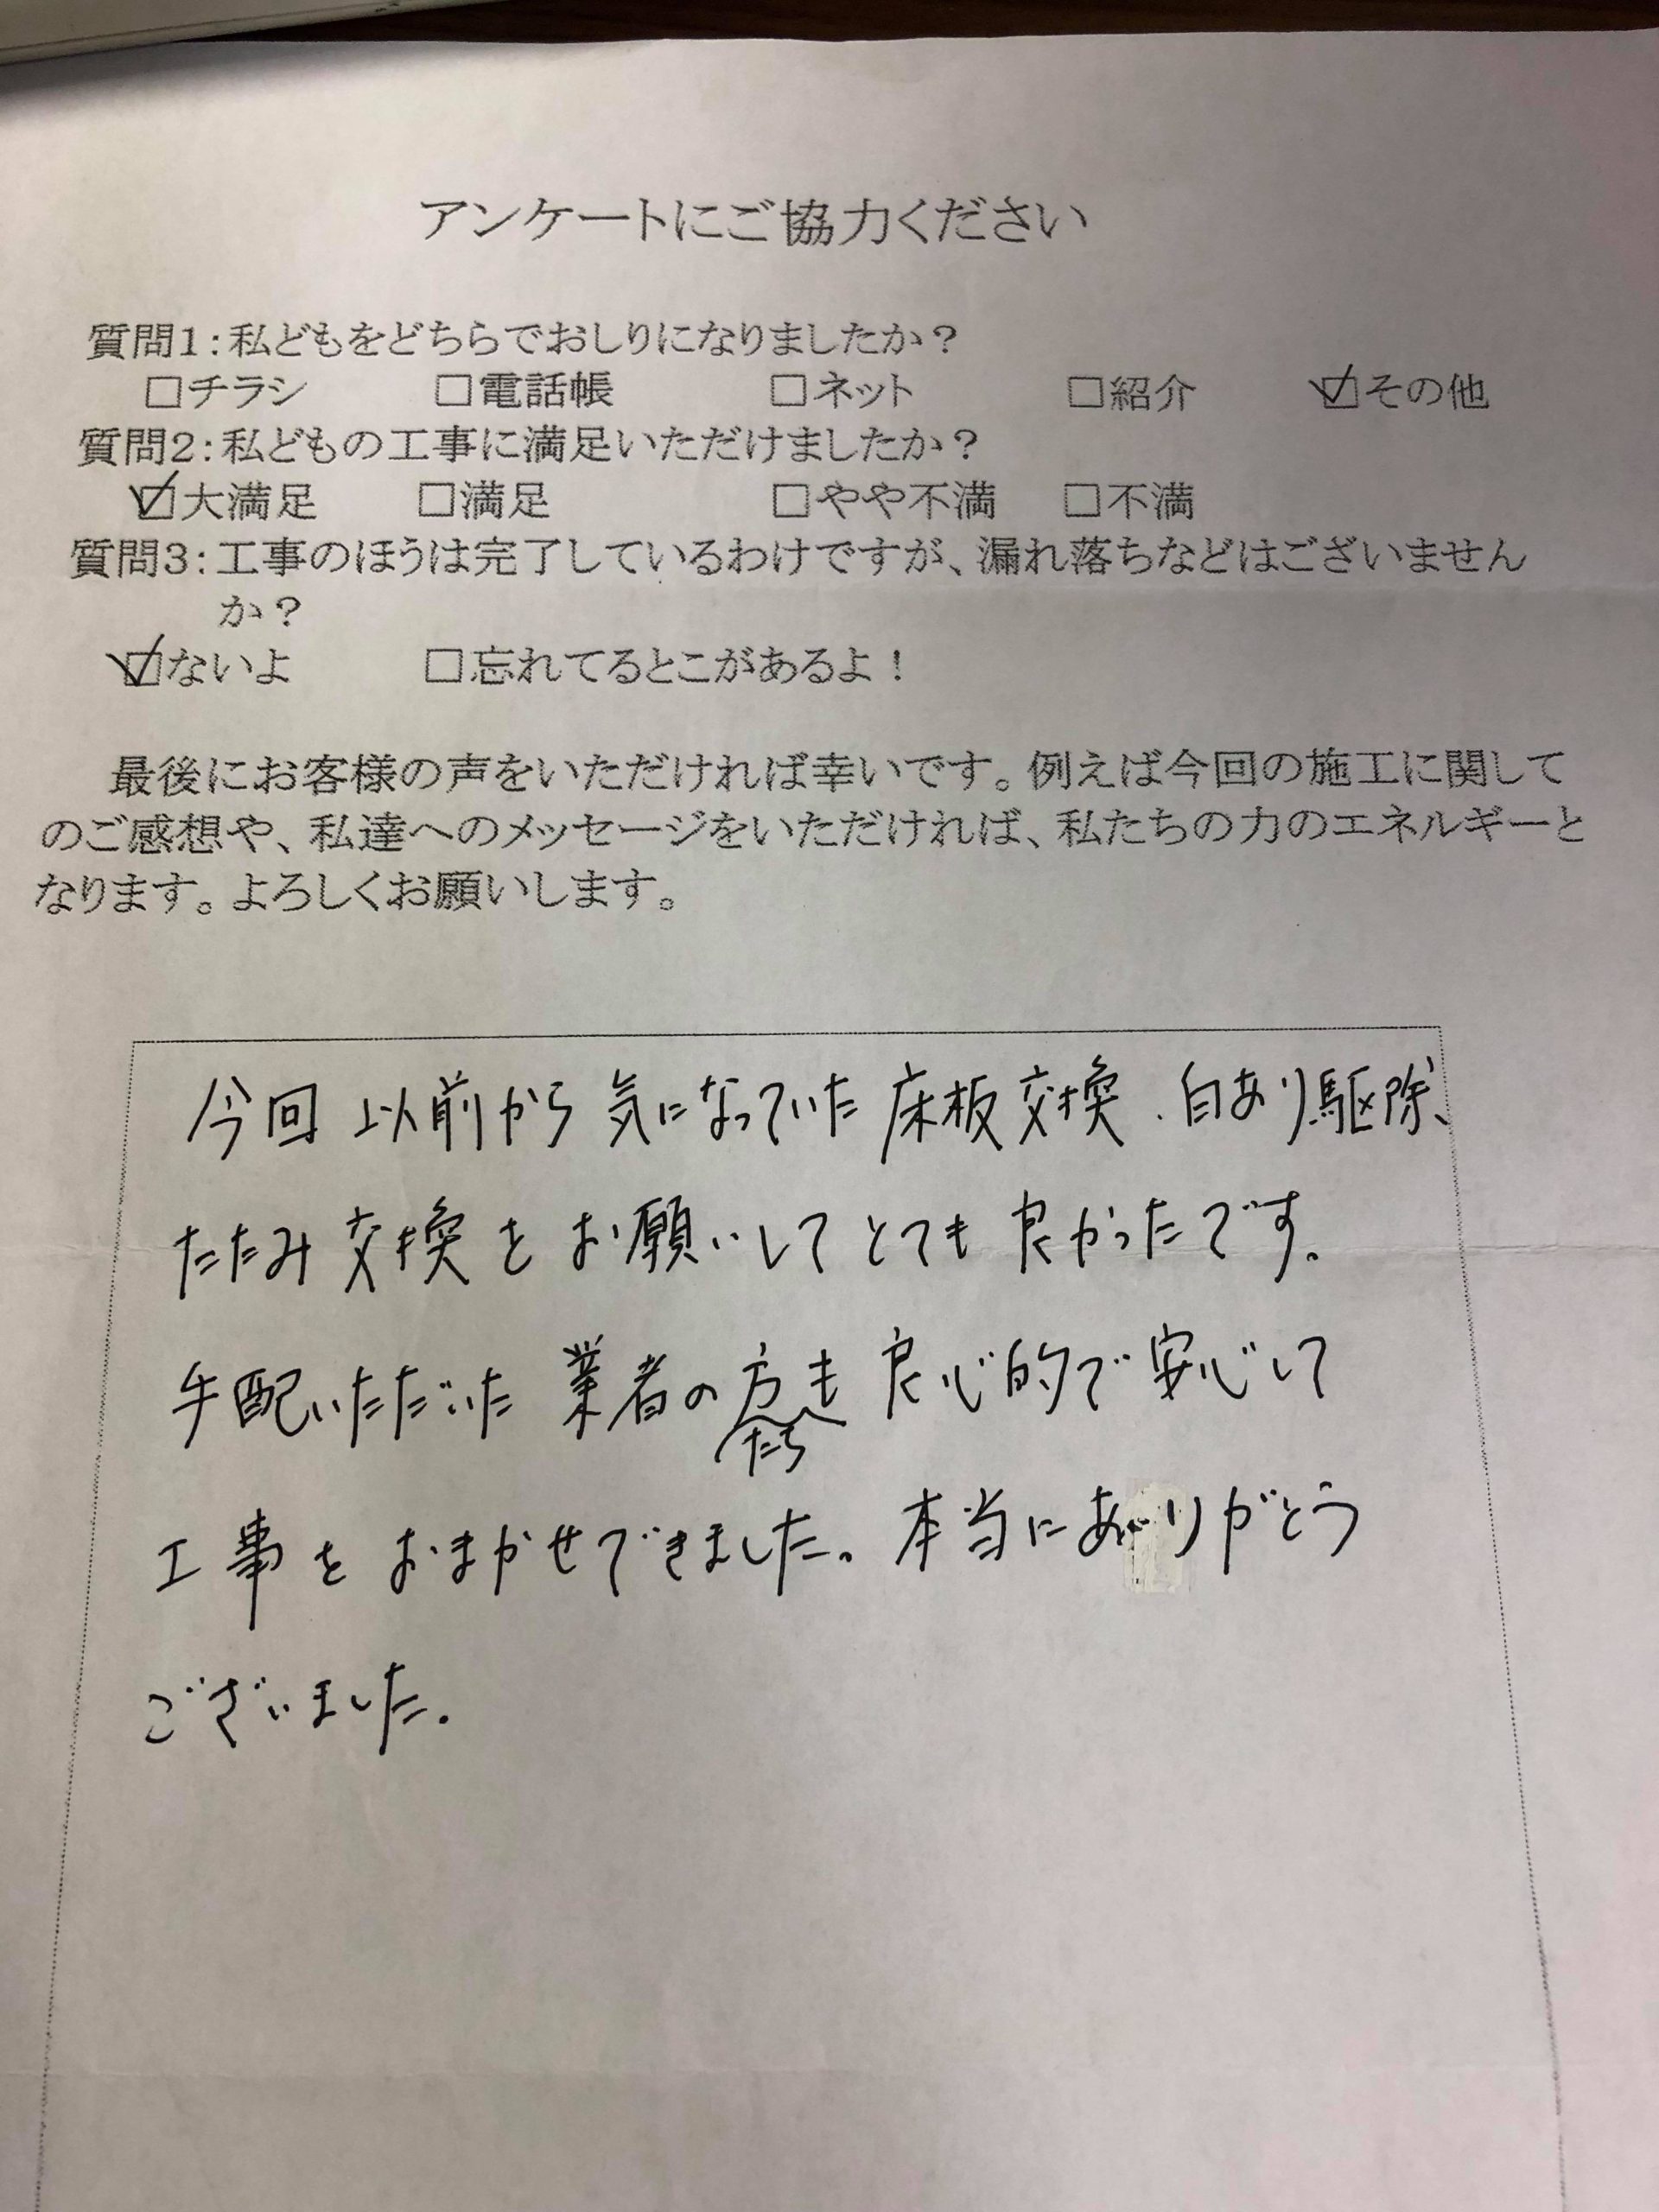 アンケートにご協力ください
質問1：私どもをどちらでおしりになりましたか？
□チラシ □電話帳 □ネット □紹介 ☑その他
質問2：私どもの工事に満足いただけましたか？
☑大満足 □満足 □やや不満 □不満
質問3：工事のほうは完了しているわけですが、漏れ落ちなどはございません
か？
☑ないよ □忘れてるとこがあるよ！
最後にお客様の声をいただければ幸いです。例えば今回の施工に関して
のご感想や、私達へのメッセージをいただければ、私たちの力のエネルギーと
なります。よろしくお願いします。
今回 以前から気になっていた床板交換、白あり駆除、
たたみ交換をお願いしてとても良かったです。
手配いただいた業者の方も良心的で安心して
たち
工事をおまかせできました。本当にありがとう
ございました。